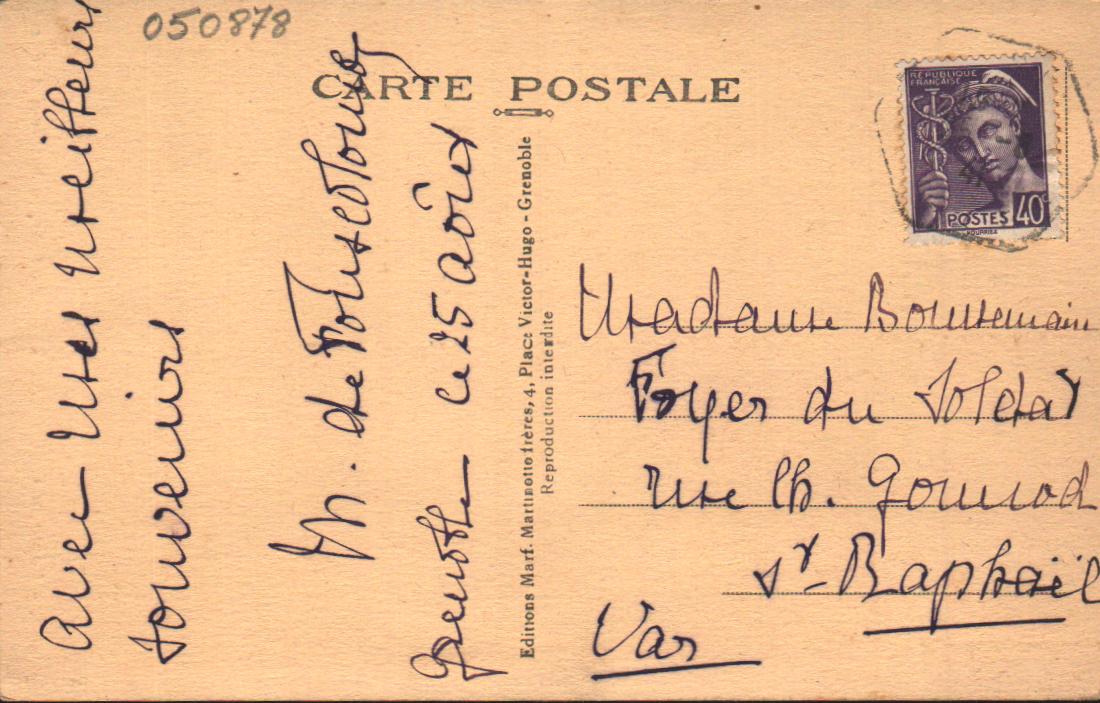 050878
CARTE POSTALE
RÉPUBLIQUE
FRANÇAISE
POSTES 40c
Avec mes meilleurs
souvenirs
M. de
Grenoble ce 25 août
Editions Marf. Martinotto frères, 4, Place Victor-Hugo - Grenoble
Reproduction interdite
Madame
Foyer du Soldat
rue Ch. Gounod
St-Raphaël
Var